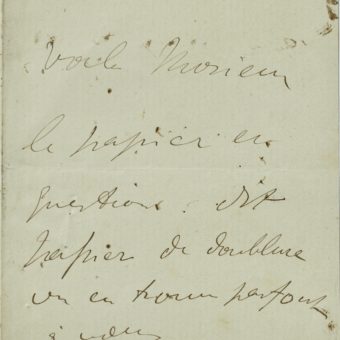 voila Monsieur
le papier en
question. dit
papier de doublure
on en trouve partout
à vous